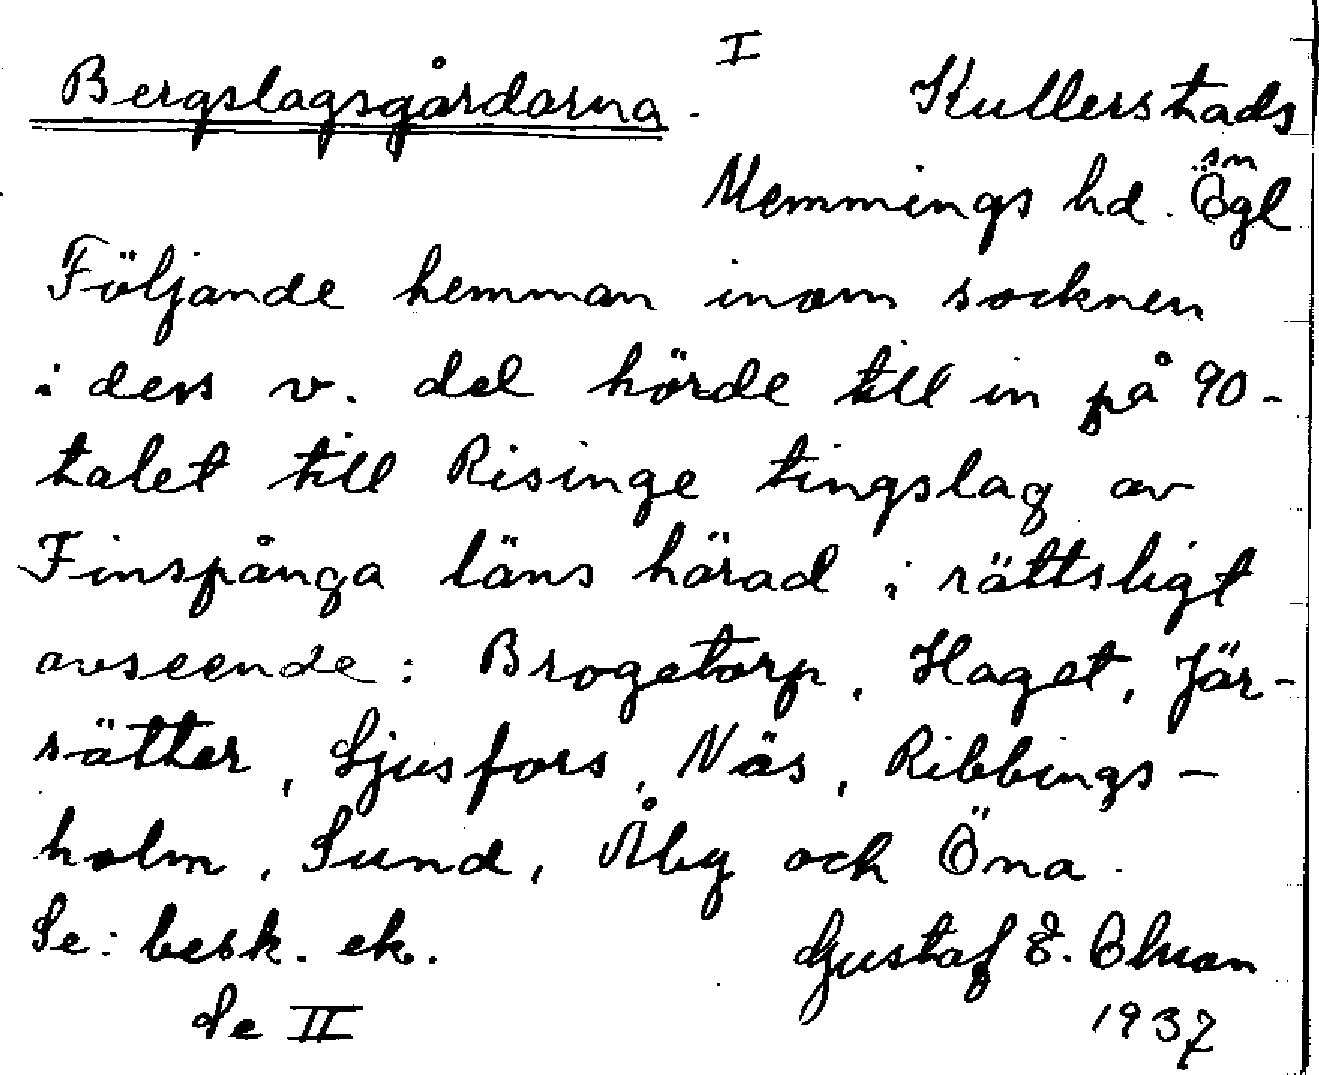 I
Bergslagsgårdarna. Kullerstads sn
Memmings hd. Ögl
Följande hemman inom socknen
i dess v. del hörde till in på 90-
talet till Risinge tingslag av
Finspånga läns härad i rättsligt
avseende: Brogetorp, Haget, Jär-
sätter, Ljusfors, Näs, Ribbings-
holm, Sund, Åby och Öna.
Se: besk. ek. Gustaf E.
Se II 1937